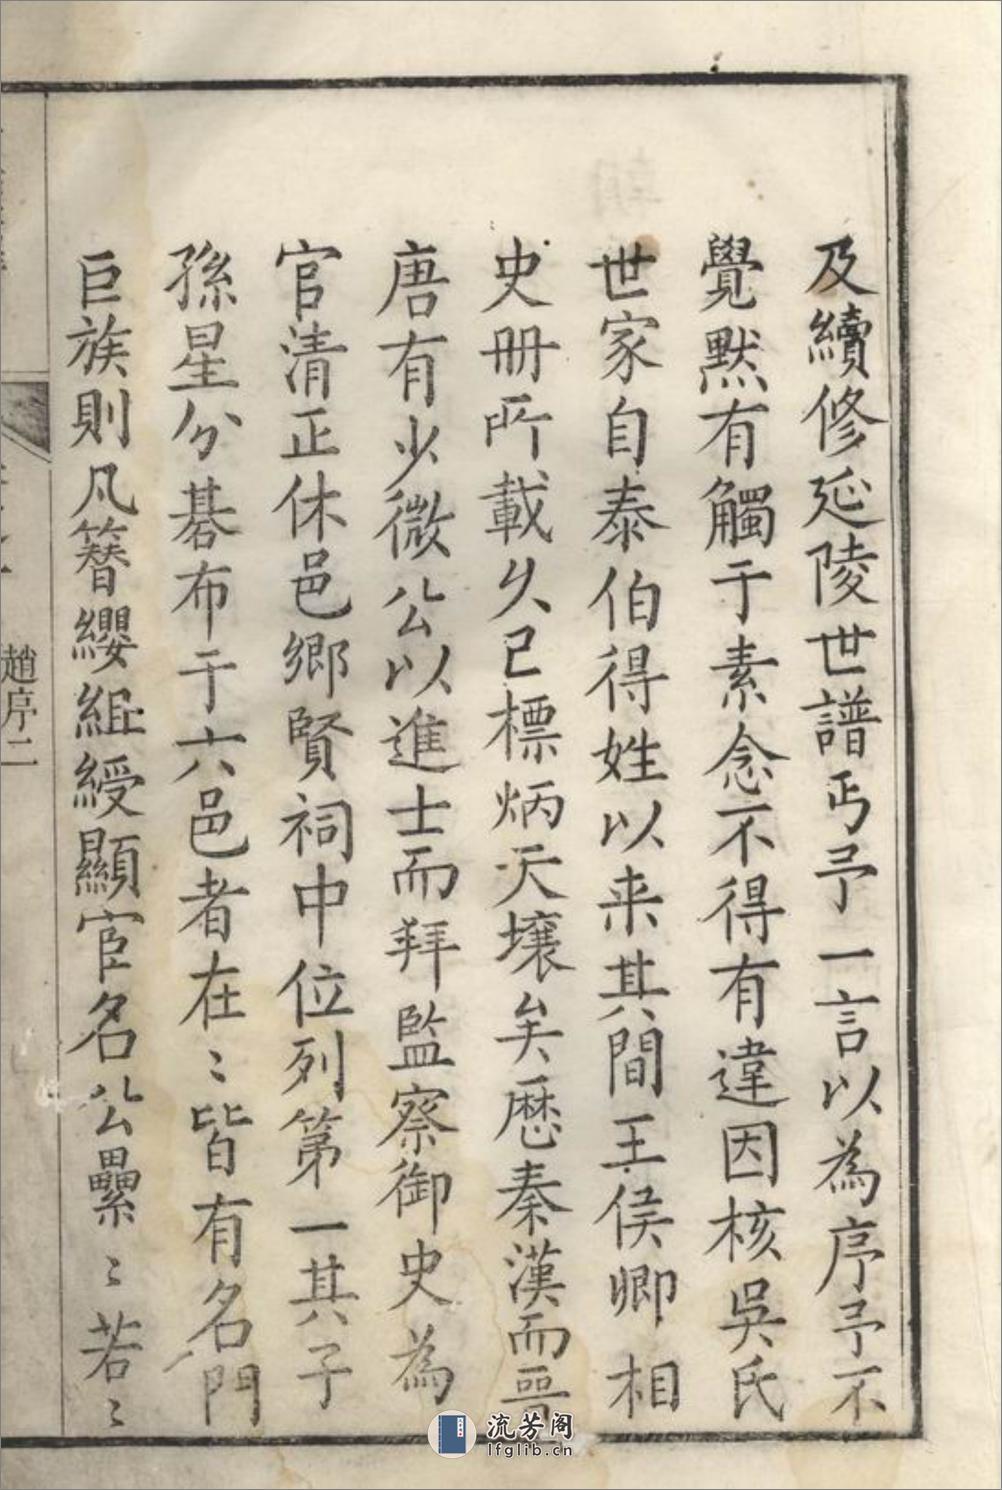 及續修延陵世譜丐予一言以為序予不
覺默有觸于素念不得有違因核吳氏
世家自泰伯得姓以来其間王侯卿相
史冊所載久已標炳天壤矣歷秦漢而晉
唐有少微公以進士而拜監察御史為
官清正休邑鄉賢祠中位列第一其子
孫星分碁布于六邑者在〻皆有名門
巨族則凡簪纓組綬顯宦名公纍〻若〻
趙序二
流芳阁
lfglib.cn